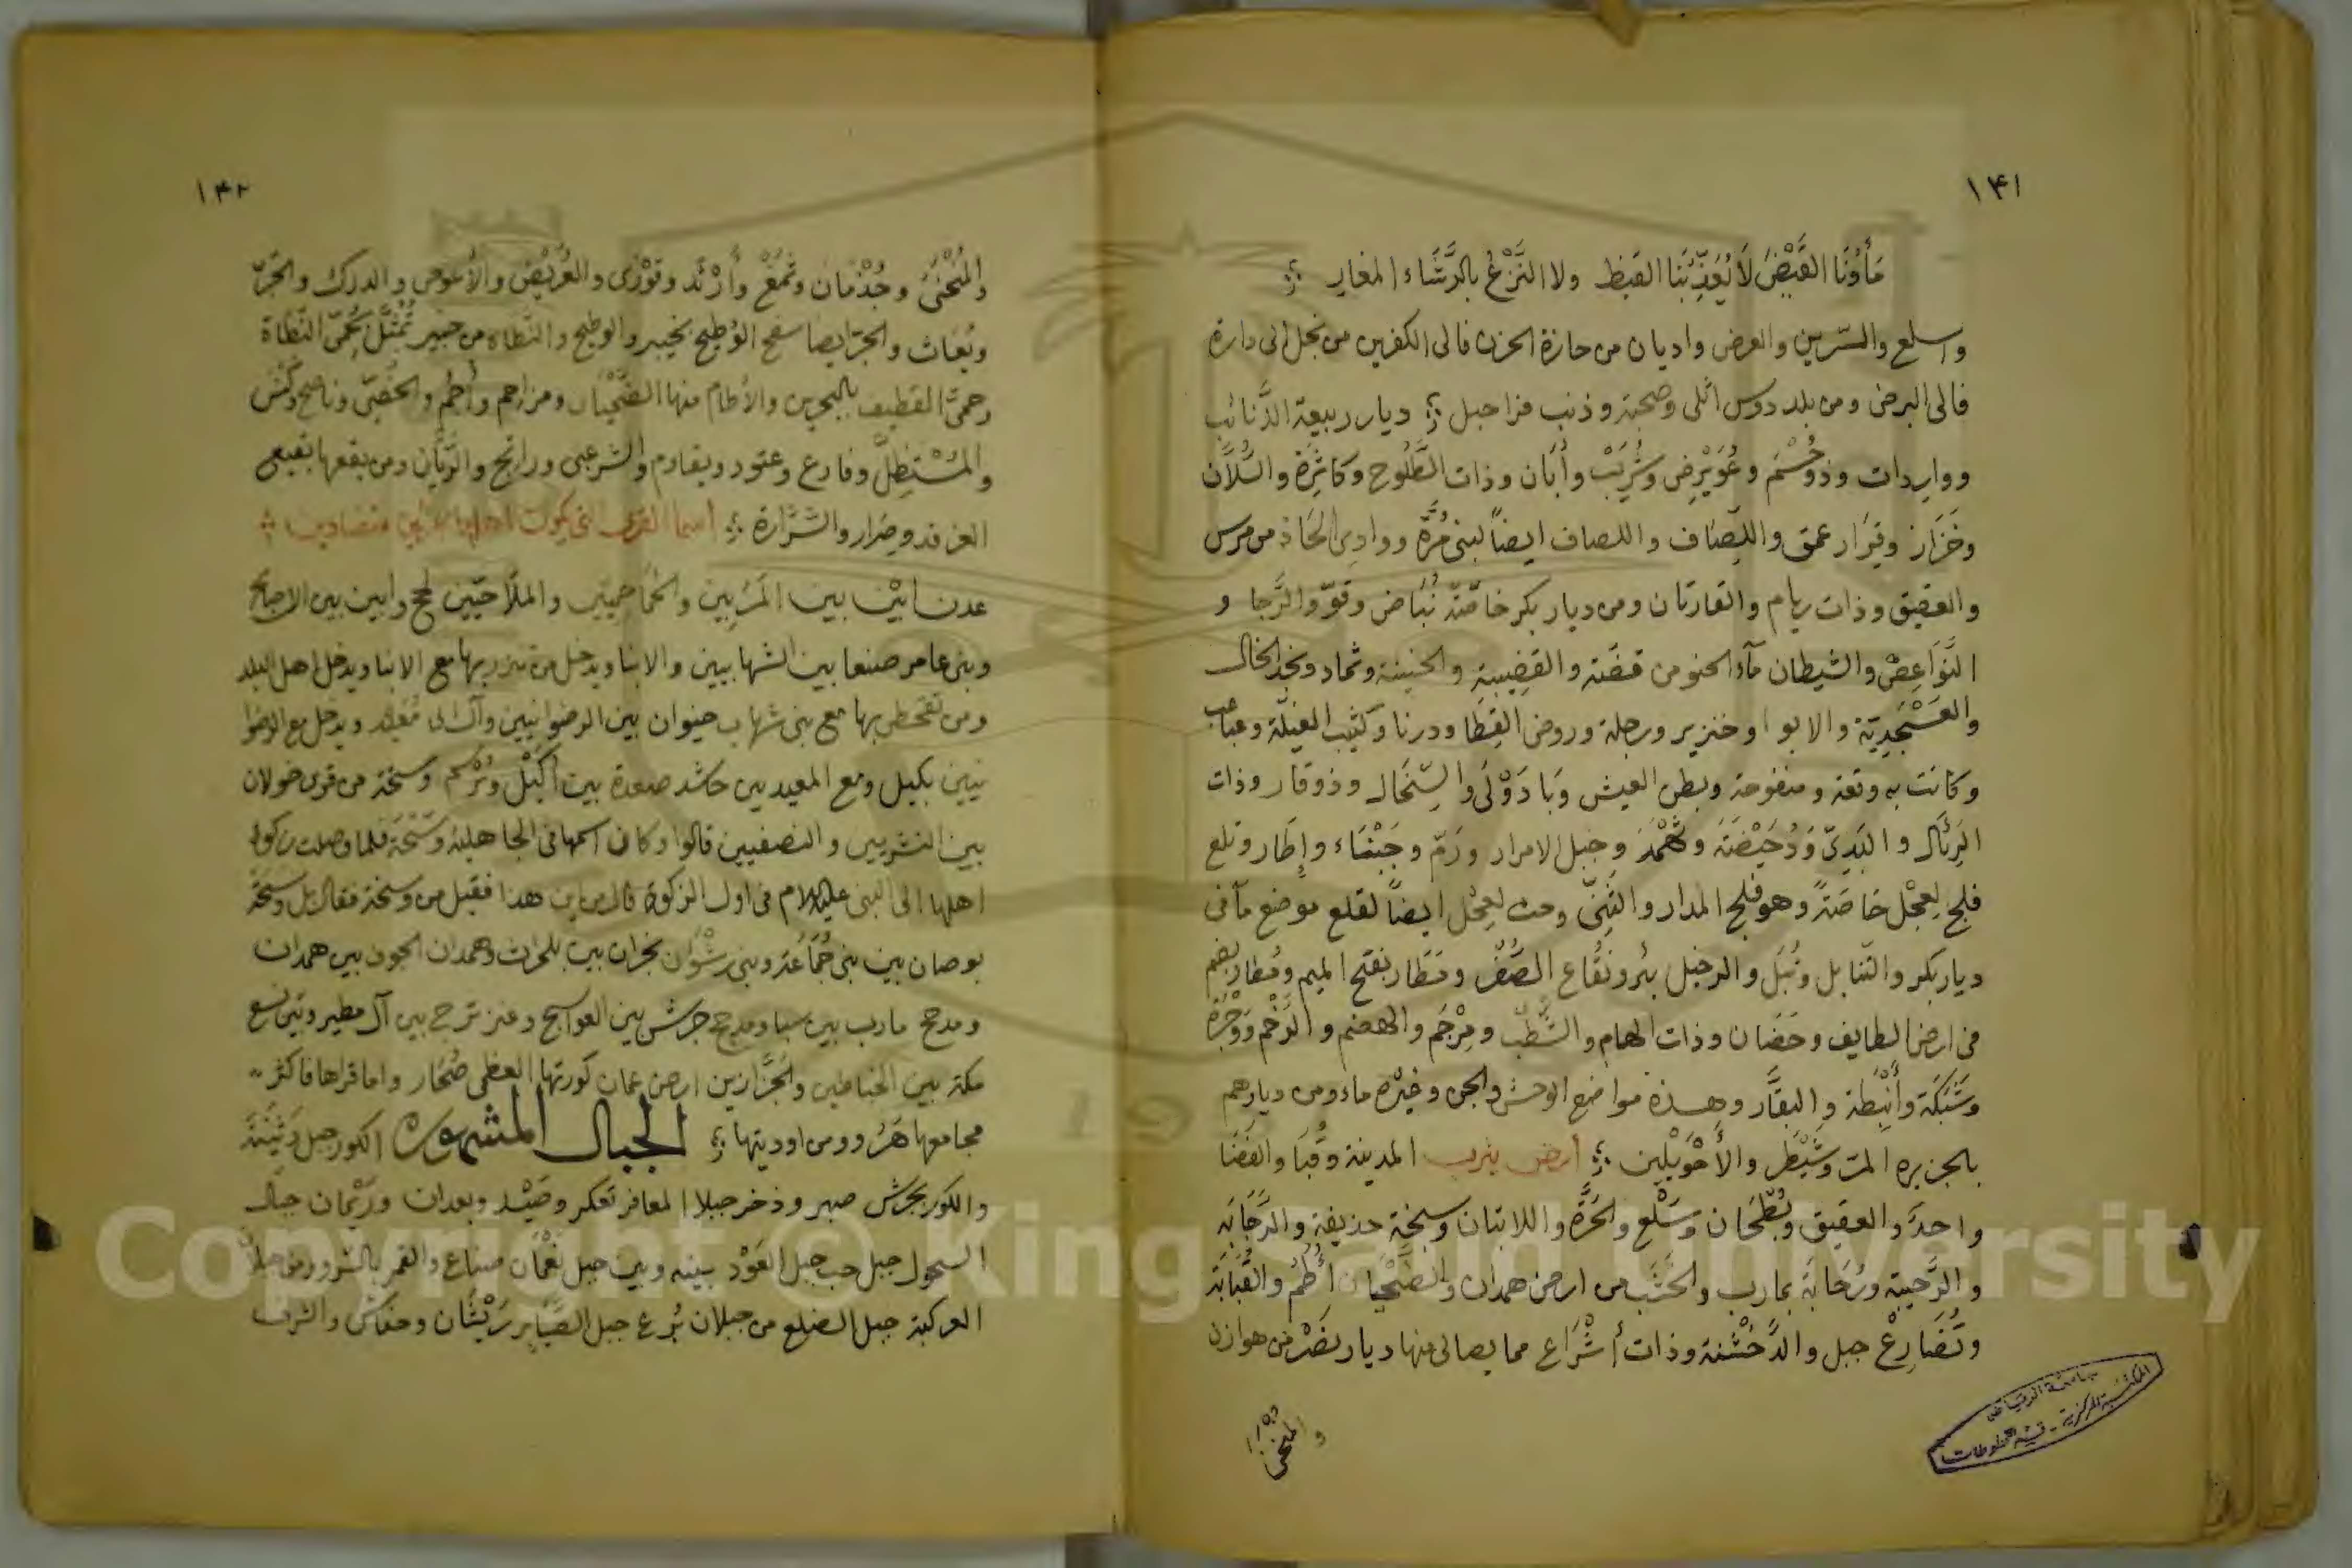 ١٤١
مَأوُنَا القَيْضُ لَا يُعَذِّبُنَا القيظ ولا النَّزْعُ بالرَّشَاء المغاير
واسلع والسّرين والعرض واديان من حازة الحزن فالى الكفرين من نجل الى دارة
فالى البرض ومن بلد دوس اثلى وضحبة وذنب فزا جبل ديار ربيعة الذَّنائب
وواردات وذو حُسْم وعُوَيْرِض وشُرَيْبْ وأبَان وذات الطَّلُوح وكاثرة والسُّلَّان
وخَزَاز وقِرَار عمق واللِّصَاف واللصاف ايضاً لبنى مُرَّة ووادى الحاذ من مرس
والعقيق وذات ريام والقارتان ومن ديار بكر خاصَّة نُبَاض وقوّ والرَّجا و
النَّوَاعِصْ والشيطان مآء الحنو من قضّة والقضيبة والحنينة وثماد ونجد الخال
والعَسْجَدِيَّة والابوا وخنزير ورجلة وروض القِطَا ودرنا وكثيب الغينة وعباعب
وكانت به وقعة ومنفوحة وبطن العيش وَبَادَوْلَى والسِّخَال وذوقار وذات
الرِئَال والبَدِىّ وَدُحَيْضَة وثَهْمَد وجبل الامرار ورَمّ وجَبْهَاء وإطَار وتلع
فلج لعِجْل خاصَةً وهو فلج المدار والثِنىّ وحث لعِجْل ايضاً لقلع موضع مآ فى
ديار بكر والتنابل ونُبَل والرجبل بئر ونُقَاع الصُّفْر ومَطَار بفتح الميم ومُطار بضم
فى ارض الطايف وحَضَان وذات الهام والشَّطّ ومِرْجَم والهضم والرَّخْم ووَجْرَة
وشَبَكَة وأَنْبِطَة والبقَّار وهذه مواضع الوحش والجن وغيره ماء ومن ديارهم
بالجزيره المت وشَيْطر والأَحْوَيلين ارض يثرب المدينة وقُبَا والفَضَا
واحدَ والعقيق وبُطْحَان وسَلْع والحَرَّة واللابتان وسبخة حذيفة والرَّجَابَه
والرَّحيبة ورُحَابَة بمارب والخَشَب من ارض همدان والضَّحْيَان أُطُمْ والقُبَابَة
وتُضَارِعْ جبل والدَّخْشنة وذات أشْرَاع مما يصالى منها ديار نَصْر من هوازن
والمنحنى
جامعة الرياض
المكتبة المركزية - قسم المخطوطات
١٤٢
والمُنْحَنَى وجُذْمَان وثَمَغْ وأَرْثَد وقَوْرَى والعُرَيْض والأعوص والدرك والحَرّ
وبُعَاث والحرّ ايضا سفح الوُطيح بخيبر والوطيح والنَّطاه من خيبر تُمْثَّل بحُمّى النَّطاة
وحمىَّ القطيف بالبحرين والأطام منها الضَّحْيَان ومزاحم وأُجُم والحُصَىّ وناصح وكَنْس
والمُسْتَظِلّ وفارع وعتود وبقاوم والشرعبى وراتج والرَّيَّان ومن بقعها بقيع
الغرقد وضَرَار والشَّرَّارة اسما القرى التى يكون اهلها حزبين متضادين
عدن ابين بين المَرَبين والحُمَاحميّين والملَّاحيّين لحج وابين بين الاصابح
وبنى عامر صنعا بين الشهابيين والابنا ويدخل من تنزر بها مع الابنا ويدخل اهل البلد
ومن تقحطن بها مع بنى شهاب خيوان بين الرضوانيين وآل ابى مُعيْد ويدخل مع الرضوا
نيين بكيل ومع المعيديين حاشد صعدة بين أكيْل ويُرْسم وسخة من قرى خولان
بين النشريين والنصفيين قالوا وكان اسمها فى الجاهلية وسَخَة فلما وصلت زكوة
اهلها الى النبى عليه السلام فى اول الزكوة قال من اين هذا فقيل من وسخة فقال بل وسخة
بوصان بين بنى جُمَاعَة وبنى رشْوَان نجران بين بلحرث وهمدان الجوف بين همدان
ومذحج مارب بين سبا ومذحج جرش بين العواسج وعنز ترج بين آل مطير وبنى نسع
مكة بين الخياطين والجَزَّازين ارض عمان كورتها العظمى صُحَار واما قراها فاكثر
مجامعها هَزُو ومن اوديتها الجبال المشهورة الكور جبل دَثينَة
والكور بجرش صبر وذخر جبلا المعافر تعكر وصَيْد وبعدان ورَيْمان جبال
السحول جبل حب جبل العَوْد بينه وبين جبل نَعْمَان ميناع والقمر بالشرو ومن جبلا
العركبة جبل الضلع من جبلان بُرع جبل الصَّنَاير رَيْشَان وحفاش والشرف
Copyright © King Saud University